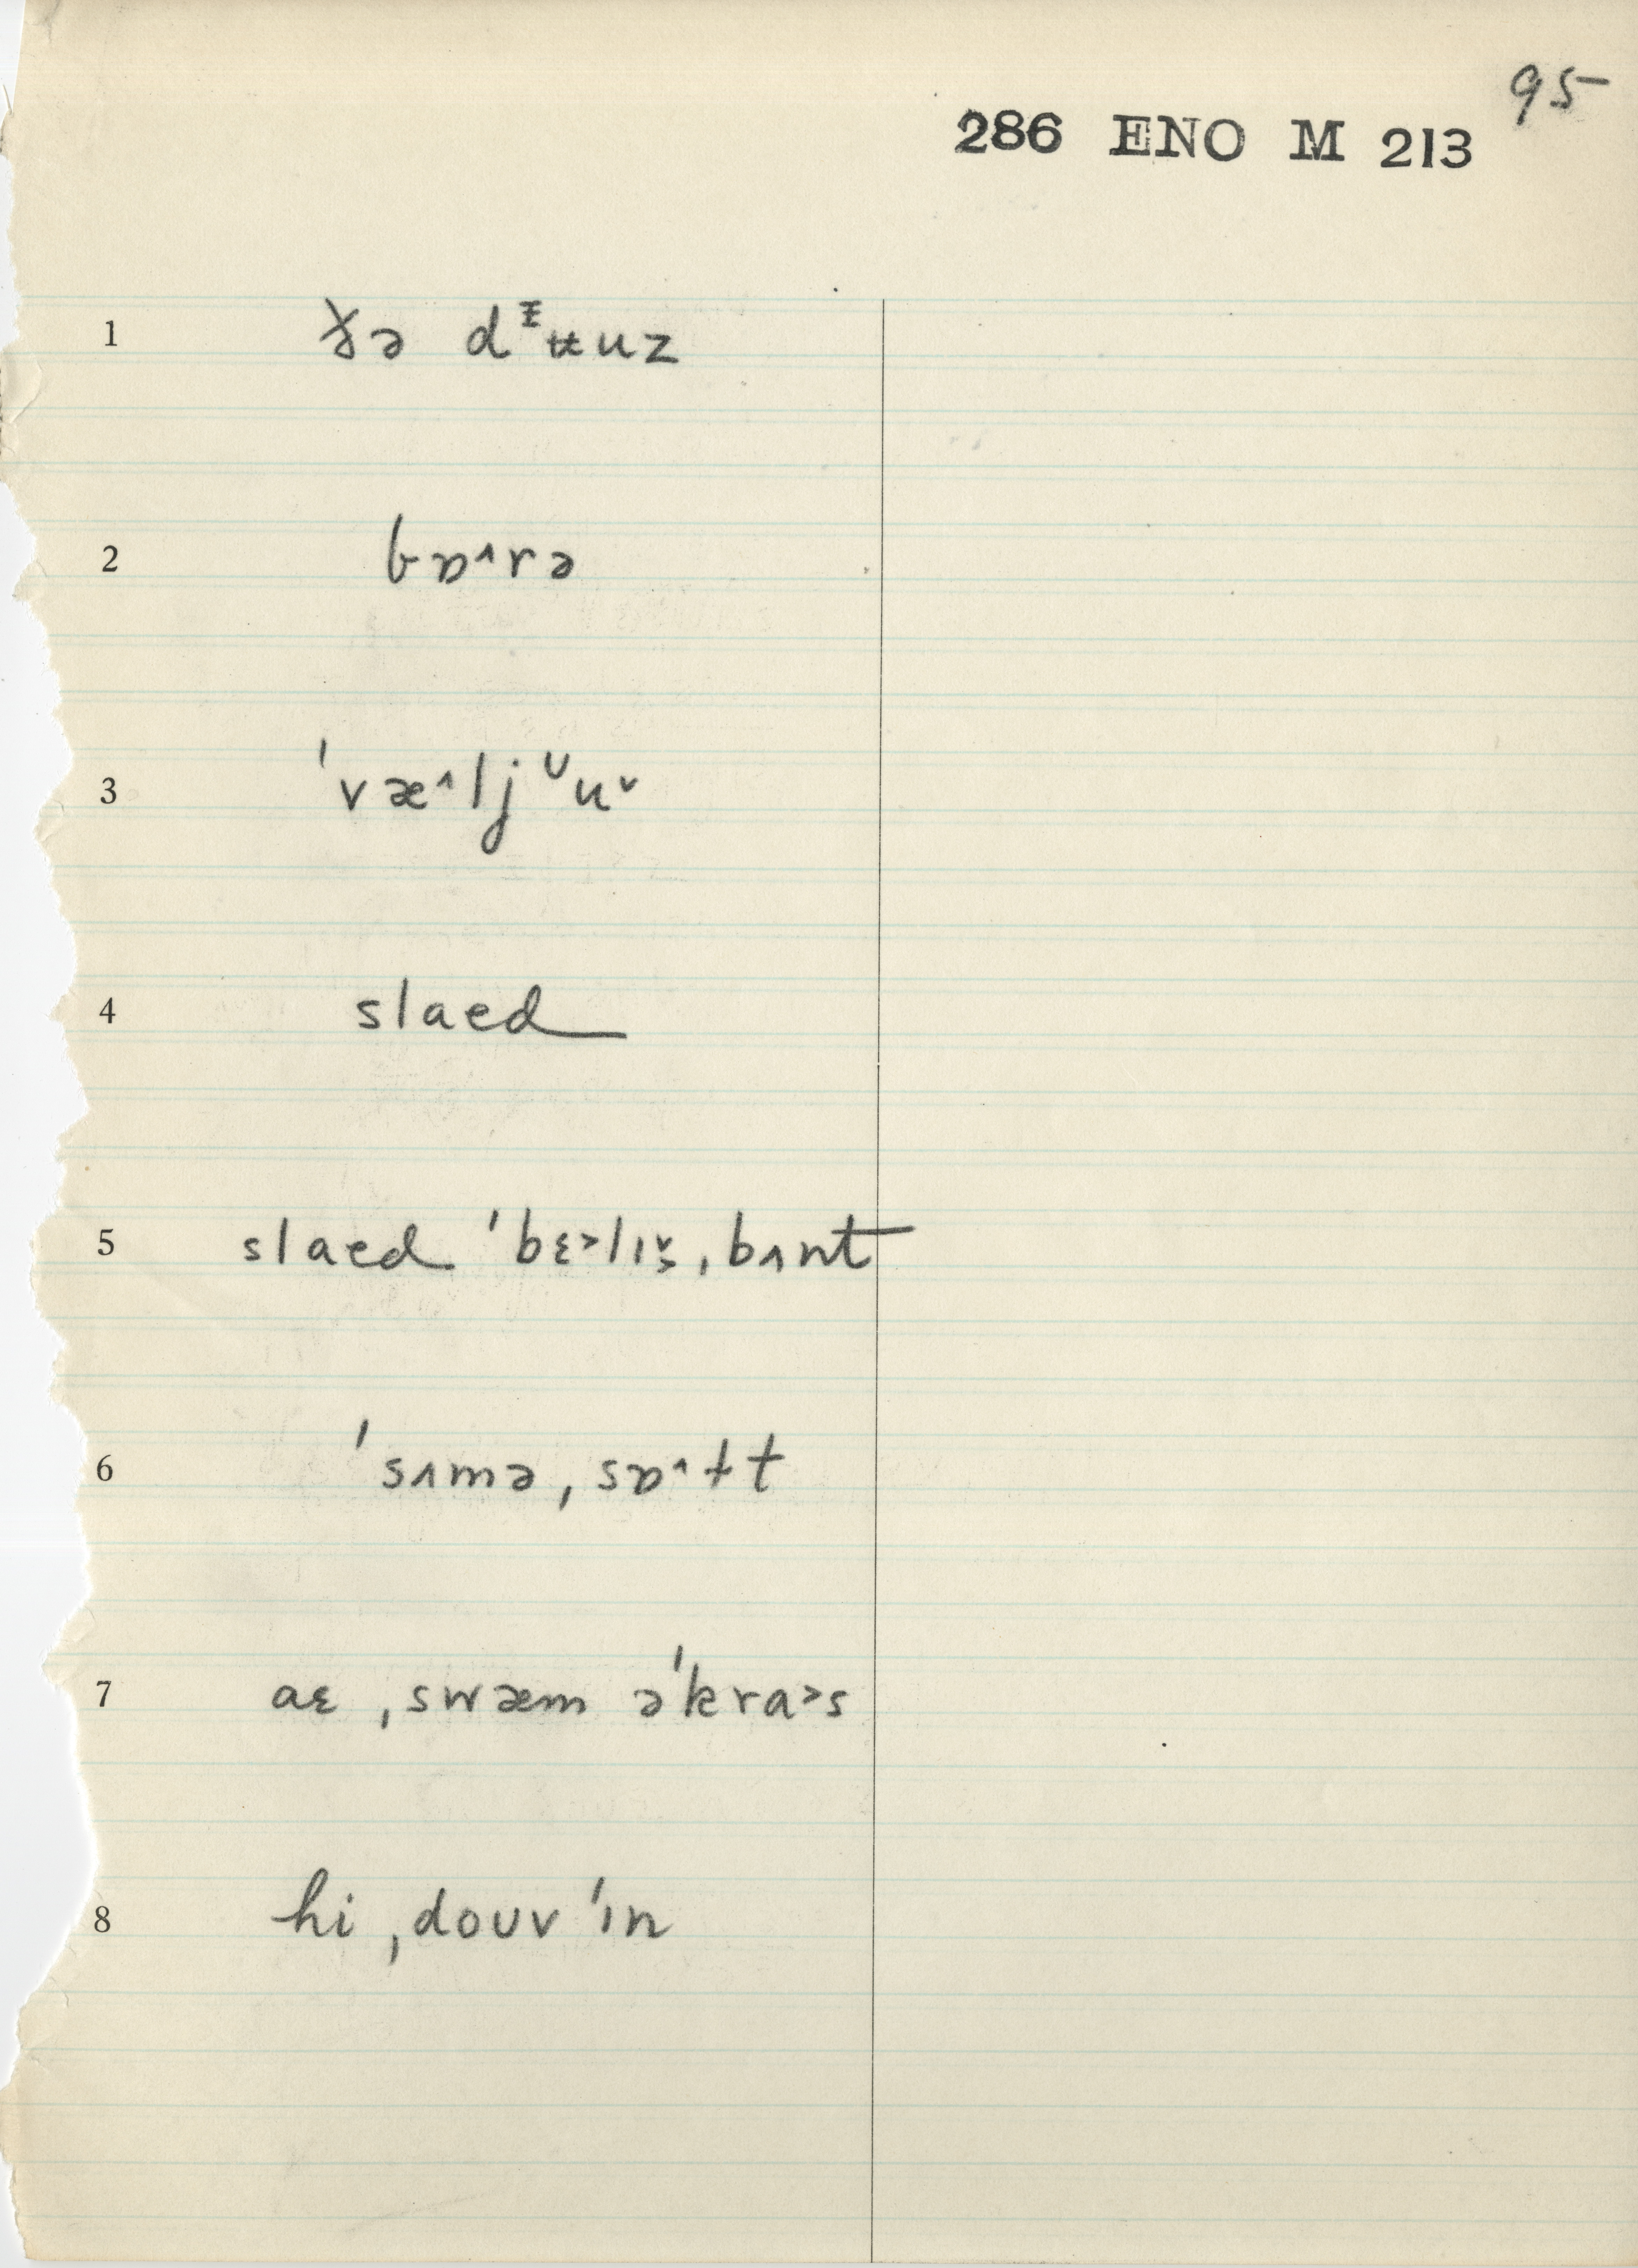 95
286 ENO M 213
1 ðə dᵻʉuz
2 bɒ^rə
3 ˈvæ^ljᶷu˅
4 slaed
5 slaed ˈbɛ˃lɪ˅ˌbʌnt
6 ˈsʌməˌsɒ^ɫt
7 aɛ ˌswæm əˈkra˃s
8 hi ˌdoʊv ˈɪn